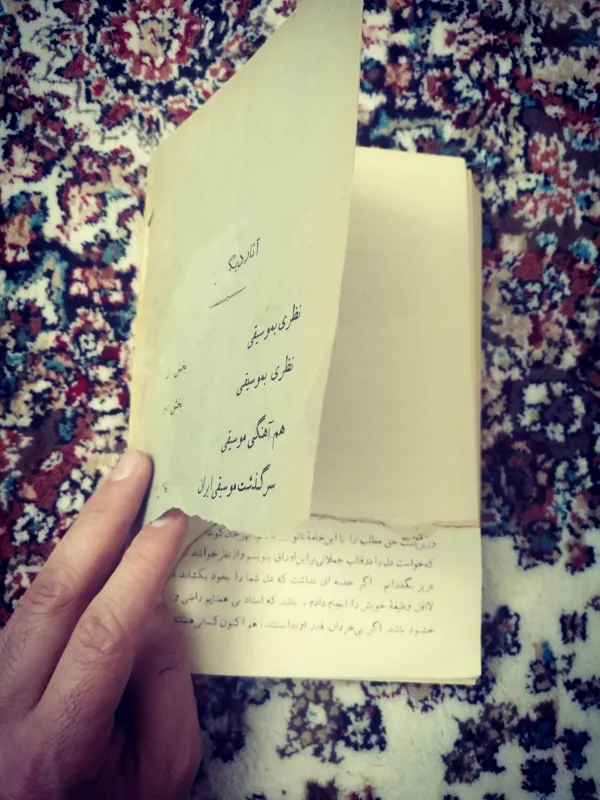 آثار دیگر
نظری بموسیقی
بخش
نظری بموسیقی
بخش
هم آهنگی موسیقی
سرگذشت موسیقی ایران
حق مطالب را با این خامهٔ
که خواست دل را در قالب جملاتی بر این اوراق بنویسم و از نظر خوانند
عزیز بگذرانم اگر جذبه ای نداشت که دل شما را بخود بکشاند
لااقل وظیفهٔ خویش را انجام دادم . باشد که استاد بی همتایم راضی و
خشنود باشد اگر بی خردان، قدر او ندانستند، هم اکنون کسانی هستند